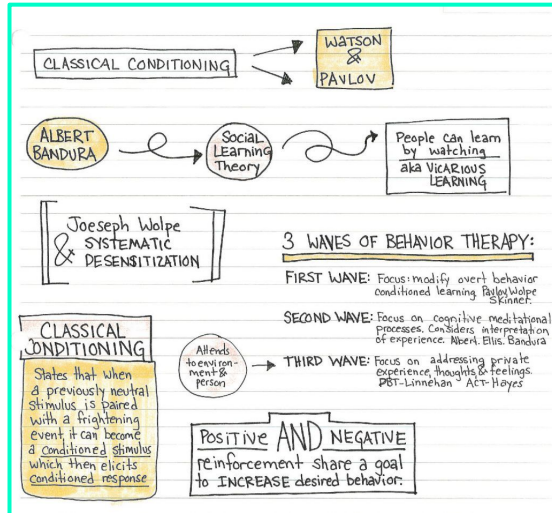 CLASSICAL CONDITIONING
WATSON
&
PAVLOV
ALBERT
BANDURA
Social
Learning
Theory
People can learn
by watching
aka VICARIOUS
LEARNING
Joeseph Wolpe
& SYSTEMATIC
DESENSITIZATION
3 WAVES OF BEHAVIOR THERAPY:
FIRST WAVE: Focus: modify overt behavior
conditioned learning Pavlov Wolpe
Skinner.
SECOND WAVE: Focus on cognitive meditational
processes. Considers interpretation
of experience. Albert. Ellis. Bandura
THIRD WAVE: Focus on addressing private
experience, thoughts & feelings.
DBT-Linnehan ACT-Hayes
Attends
to environ-
ment &
person
CLASSICAL
CONDITIONING
States that when
a previously neutral
stimulus is paired
with a frightening
event, it can become
a conditioned stimulus
which then elicits
conditioned response
POSITIVE AND NEGATIVE
reinforcement share a goal
to INCREASE desired behavior.